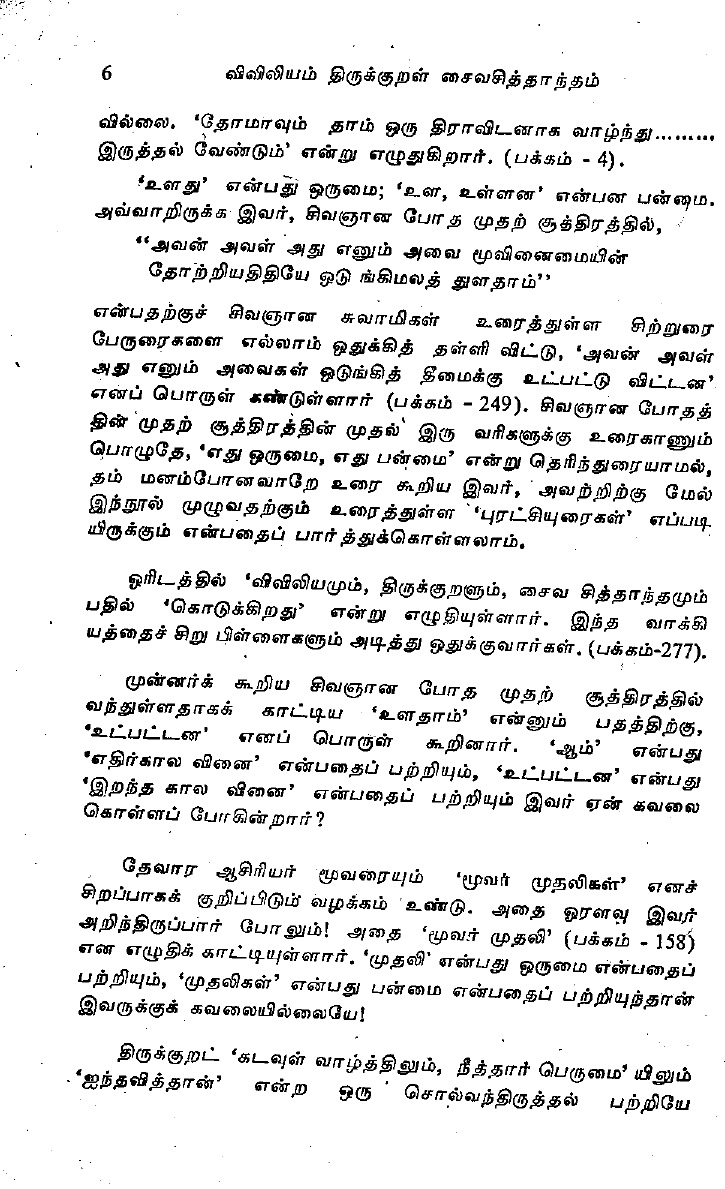 6 விவிலியம் திருக்குறள் சைவசித்தாந்தம்
வில்லை. ‘தோமாவும் தாம் ஒரு திராவிடனாக வாழ்ந்து.........
இருத்தல் வேண்டும்’ என்று எழுதுகிறார். (பக்கம் - 4).
‘உளது’ என்பது ஒருமை; ‘உள, உள்ளன’ என்பன பன்மை.
அவ்வாறிருக்க இவர், சிவஞான போத முதற் சூத்திரத்தில்,
“அவன் அவள் அது எனும் அவை மூவினைமையின்
தோற்றியதிதியே ஒடு ங்கிமலத் துளதாம்”
என்பதற்குச் சிவஞான சுவாமிகள் உரைத்துள்ள சிற்றுரை
பேருரைகளை எல்லாம் ஒதுக்கித் தள்ளி விட்டு, ‘அவன் அவள்
அது எனும் அவைகள் ஒடுங்கித் தீமைக்கு உட்பட்டு விட்டன’
எனப் பொருள் கண்டுள்ளார் (பக்கம் - 249). சிவஞான போதத்
தின் முதற் சூத்திரத்தின் முதல் இரு வரிகளுக்கு உரைகாணும்
பொழுதே, ‘எது ஒருமை, எது பன்மை’ என்று தெரிந்துரையாமல்,
தம் மனம்போனவாறே உரை கூறிய இவர், அவற்றிற்கு மேல்
இந்நூல் முழுவதற்கும் உரைத்துள்ள ‘புரட்சியுரைகள்’ எப்படி
யிருக்கும் என்பதைப் பார்த்துக்கொள்ளலாம்.
ஓரிடத்தில் ‘விவிலியமும், திருக்குறளும், சைவ சித்தாந்தமும்
பதில் ‘கொடுக்கிறது’ என்று எழுதியுள்ளார். இந்த வாக்கி
யத்தைச் சிறு பிள்ளைகளும் அடித்து ஒதுக்குவார்கள். (பக்கம்-277).
முன்னர்க் கூறிய சிவஞான போத முதற் சூத்திரத்தில்
வந்துள்ளதாகக் காட்டிய ‘உளதாம்’ என்னும் பதத்திற்கு,
‘உட்பட்டன’ எனப் பொருள் கூறினார். ‘ஆம்’ என்பது
‘எதிர்கால வினை’ என்பதைப் பற்றியும், ‘உட்பட்டன’ என்பது
‘இறந்த கால வினை’ என்பதைப் பற்றியும் இவர் ஏன் கவலை
கொள்ளப் போகின்றார்?
தேவார ஆசிரியர் மூவரையும் ‘மூவர் முதலிகள்’ எனச்
சிறப்பாகக் குறிப்பிடும் வழக்கம் உண்டு. அதை ஓரளவு இவர்
அறிந்திருப்பார் போலும்! அதை ‘மூவர் முதலி’ (பக்கம் - 158)
என எழுதிக் காட்டியுள்ளார். ‘முதலி’ என்பது ஒருமை என்பதைப்
பற்றியும், ‘முதலிகள்’ என்பது பன்மை என்பதைப் பற்றியுந்தான்
இவருக்குக் கவலையில்லையே!
திருக்குறட் ‘கடவுள் வாழ்த்திலும், நீத்தார் பெருமை’ யிலும்
‘ஐந்தவித்தான்’ என்ற ஒரு சொல்வந்திருத்தல் பற்றியே